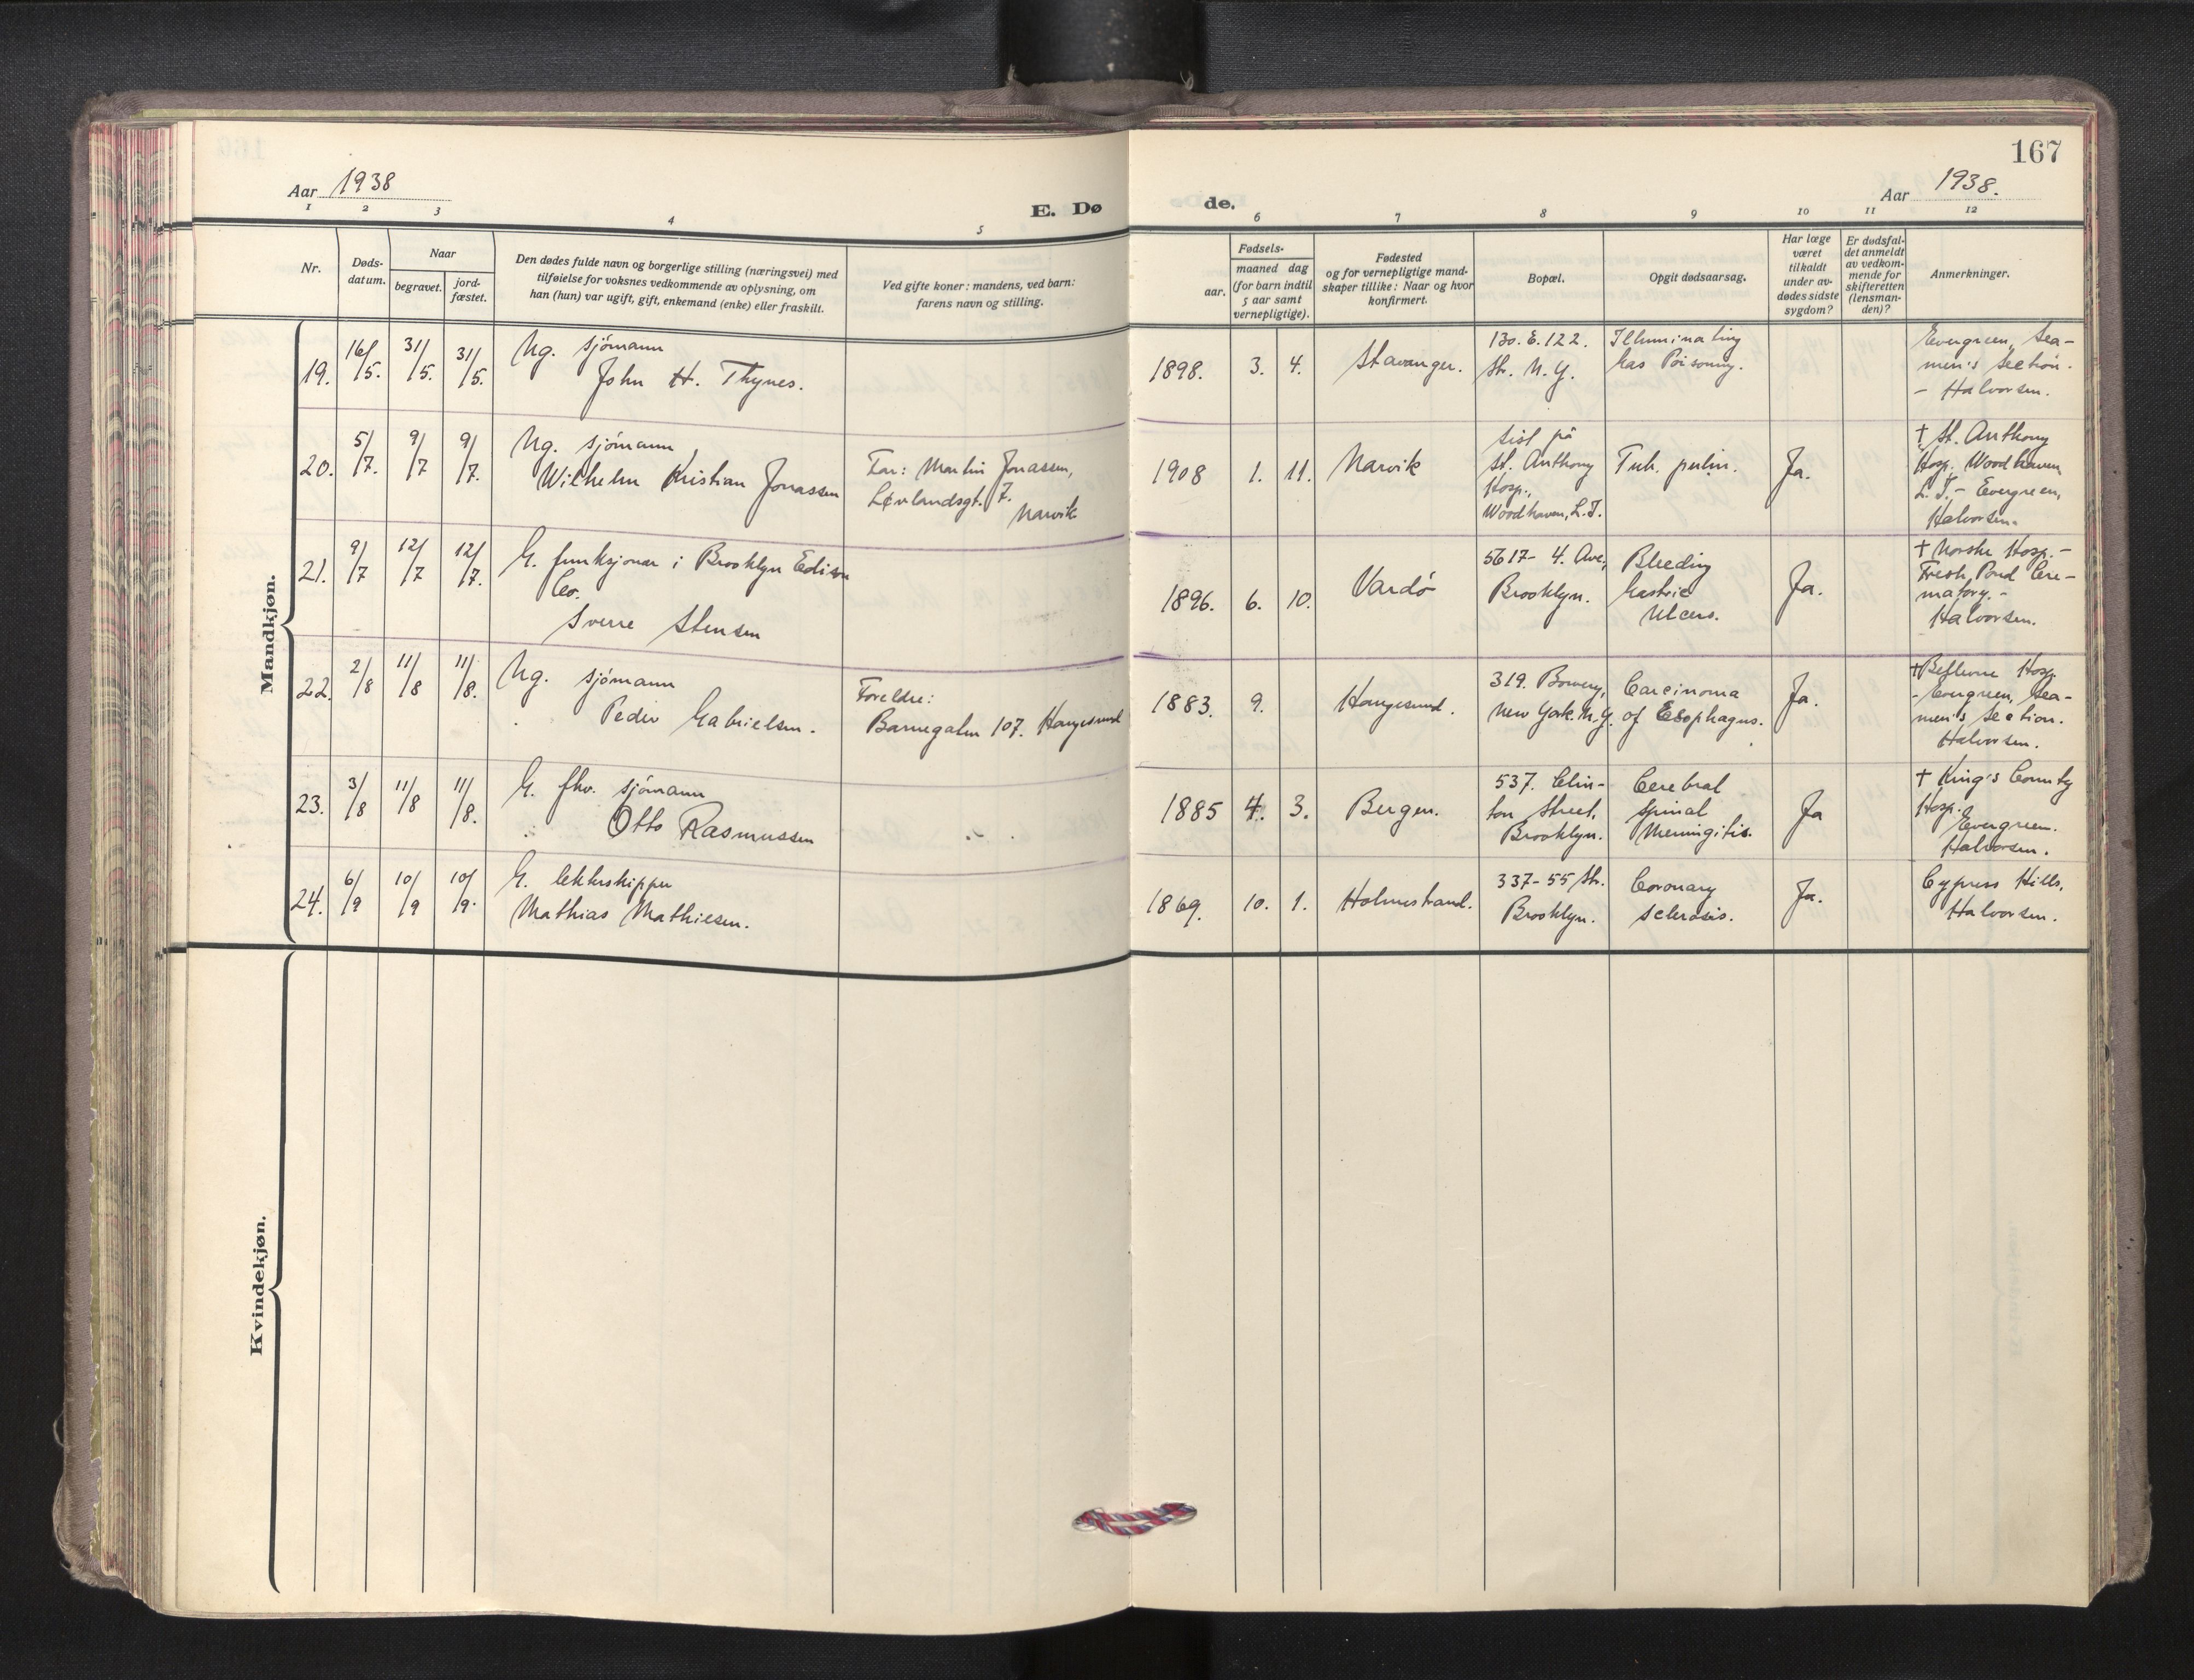 167
Aar 1938
E. Dø de.
Aar 1938.
1 2 3 4 5 6 7 8 9 10 11 12
Nr.
Døds-
datum.
Naar
begravet.
jord-
fæstet.
Den dødes fulde navn og borgerlige stilling (næringsvei) med
tilføielse for voksnes vedkommende av oplysning, om
han (hun) var ugift, gift, enkemand (enke) eller fraskilt.
Ved gifte koner: mandens, ved barn:
farens navn og stilling.
Fødsels-
aar.
maaned dag
(for barn indtil
5 aar samt
vernepligtige).
Fødested
og for vernepligtige mand-
skaper tillike: Naar og hvor
konfirmert.
Bopæl.
Opgit dødsaarsag.
Har læge
været
tilkaldt
under av-
dødes sidste
sygdom?
Er dødsfal-
det anmeldt
av vedkom-
mende for
skifteretten
(lensman-
den)?
Anmerkninger.
Mandkjøn.
19. 16/5. 31/5. 31/5.
Ug. sjømann
John H. Thynes.
1898. 3. 4.
Stavanger.
130. E. 122.
Str. N. Y.
Illuminating
Gas Poisoning.
Evergreen, Sea-
men's Section.
- Halvorsen.
20. 5/7. 9/7 9/7.
Ug. sjømann
Wilhelm Kristian Jonassen
Far: Martin Jonassen,
Løvlandsgt. 7.
Narvik
1908 1. 11.
Narvik
sist på
St. Anthony
Hosp.,
Woodhaven, L. I.
Tub. pulm.
Ja.
† St. Anthony
Hosp. Woodhaven,
L. I. - Evergreen,
Halvorsen.
21. 9/7 12/7 12/7.
G. funksjonær i Brooklyn Edison
Co.
Sverre Stensen
1896. 6. 10.
Vardø
5617- 4. Ave,
Brooklyn.
Bleeding
Gastric
Ulcers.
Ja.
† Norske Hosp. -
Fresh Pond Cre-
matory. -
Halvorsen.
22. 2/8 11/8 11/8.
Ug. sjømann
Peder Gabrielsen.
Foreldre:
Barnegaten 107. Haugesund
1883. 9.
Haugesund.
319. Bowery,
New York. N. Y.
Carcinoma
of Esophagus.
Ja.
† Bellevue Hosp.
- Evergreen, Sea-
men's Section.
Halvorsen.
23. 3/8 11/8 11/8.
G. fhv. sjømann
Otto Rasmussen
1885 4. 3.
Bergen.
537. Clin-
ton Street,
Brooklyn.
Cerebral
spinal
Meningitis.
Ja
† King's County
Hosp.
Evergreen.
Halvorsen.
24. 6/9 10/9 10/9.
G. lekterskipper
Mathias Mathiesen.
1869. 10. 1.
Holmestrand.
337- 55 Str.
Brooklyn.
Coronary
sclerosis.
Ja.
Cypress Hills,
Halvorsen.
Kvindekjøn.